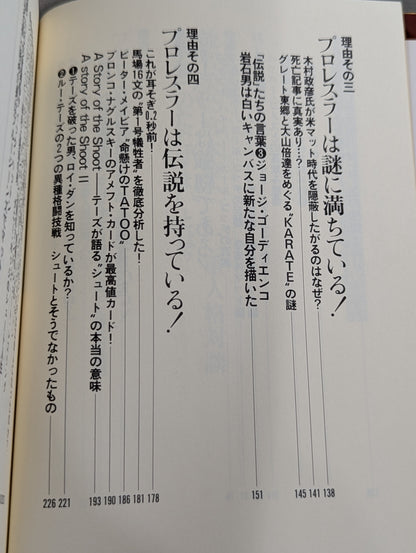 理由その三
プロレスラーは謎に満ちている!
木村政彦氏が米マット時代を隠蔽したがるのはなぜ? 138
死亡記事に真実あり…? 141
グレート東郷と大山倍達をめぐる“KARATE”の謎 145
「伝説」たちの言葉❸ジョージ・ゴーディエンコ
岩石男は白いキャンバスに新たな自分を描いた 151
理由その四
プロレスラーは伝説を持っている!
これが耳そぎ0.2秒前! 178
馬場16文の“第1号犠牲者”を徹底分析した! 181
ピーター・メイビア“命懸けのTATOO” 186
ブロンコ・ナグルスキーのアメフト・カードが最高値カード! 190
A Story of the Shoot──テーズが語る“シュート”の本当の意味 193
A story of the Shoot II
❶テーズを破った男、ロイ・ダンを知っているか? 221
❷ルー・テーズの2つの異種格闘技戦 シュートとそうでなかったもの 226